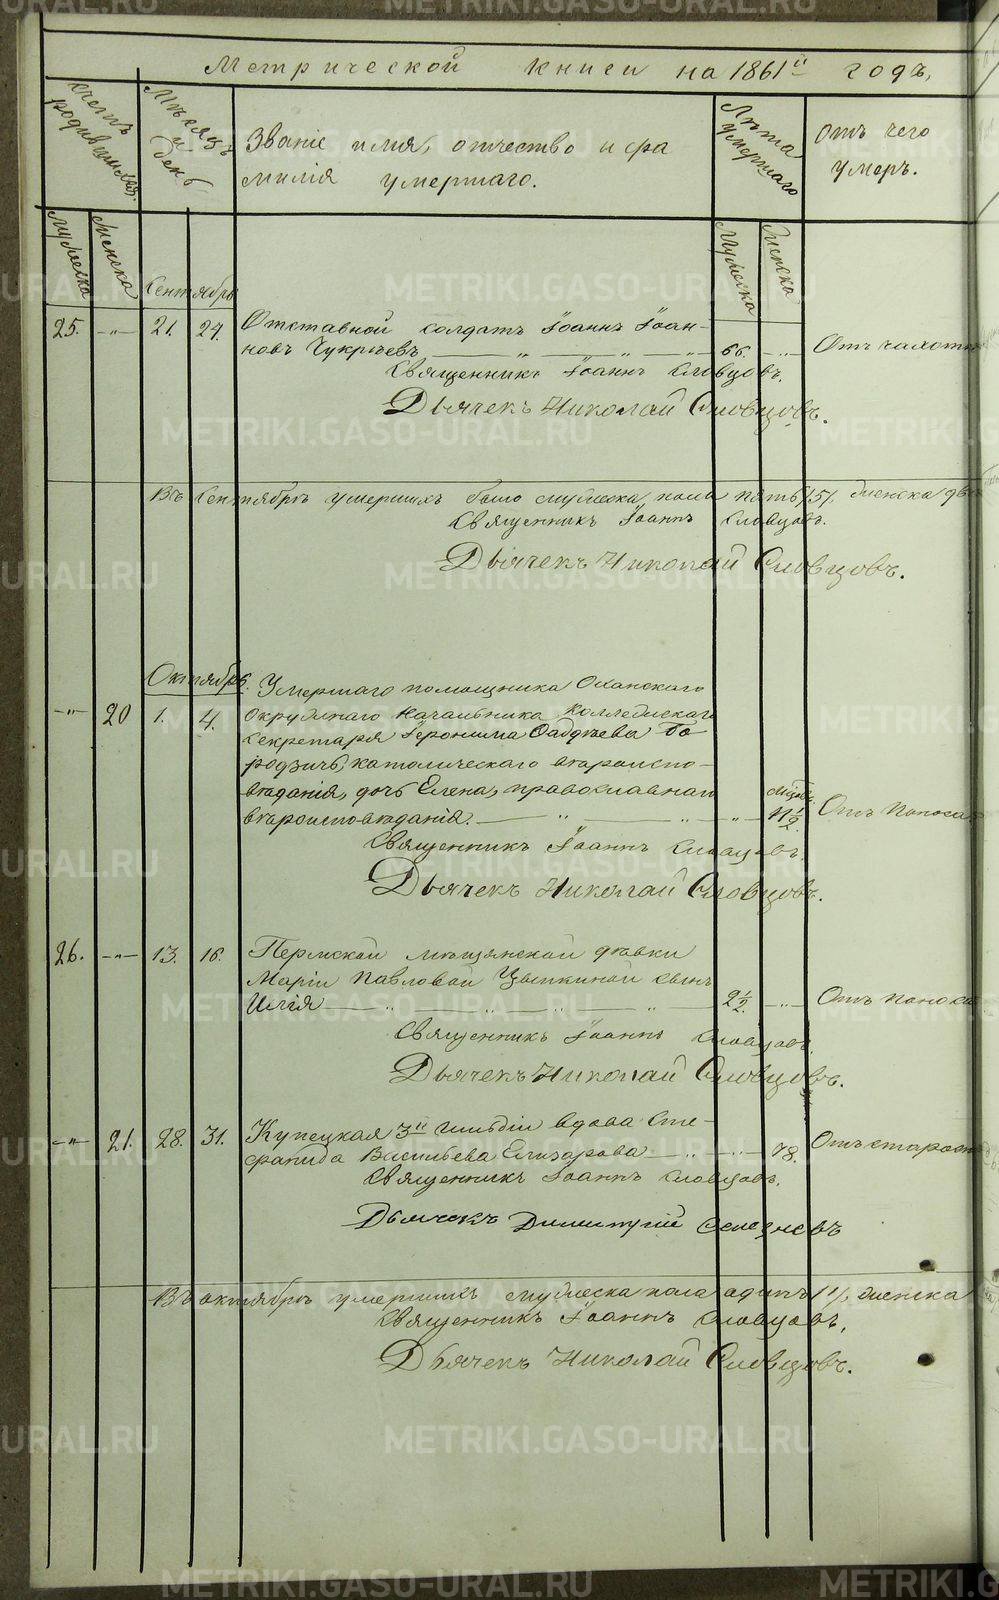 Метрической книги на 1861й годъ.
Счетъ родившихся.
Мѣсяцъ и день
Званіе имя, отчество и фа
милія умершаго.
Лѣта умершаго
Отъ чего
умеръ.
Мужеска
Женска
Мужеска
Женска
Сентябрь
25. -"- 21. 24. Отставной солдатъ Іоаннъ Іоан-
новъ Чукрѣевъ 66. -"- Отъ чахотки
Священникъ Іоаннъ Словцовъ.
Дьячекъ Николай Словцовъ.
Въ Сентябрѣ умершихъ было мужеска пола пять /5/, женска две
Священникъ Іоаннъ Словцовъ.
Дьячекъ Николай Словцовъ.
Октябрь.
Умершаго помощника Оханскаго
-"- 20 1. 4. Окружнаго Начальника Коллежскаго
Секретаря Іеронима Фаддѣева Бо
родзичъ, католическаго вѣроиспо-
вѣданія, дочь Елена, православнаго
вѣроисповѣданія. Мѣсяц. 11½. Отъ поноса
Священникъ Іоаннъ Словцовъ.
Дьячекъ Николай Словцовъ.
26. -"- 13. 16. Пермской мѣщанской дѣвки
Маріи Павловой Цыпкиной сынъ
Илія 2½. -"- Отъ поноса
Священникъ Іоаннъ Словцовъ.
Дьячекъ Николай Словцовъ.
-"- 21. 28. 31. Купецкая 3й гильдіи вдова Сте-
фанида Васильева Елизарова 78. Отъ старости
Священникъ Іоаннъ Словцовъ.
Дьячекъ Димитрій Селезневъ
Въ октябрѣ умершихъ мужеска пола одинъ /1/, женска
Священникъ Іоаннъ Словцовъ.
Дьячекъ Николай Словцовъ.
METRIKI.GASO-URAL.RU